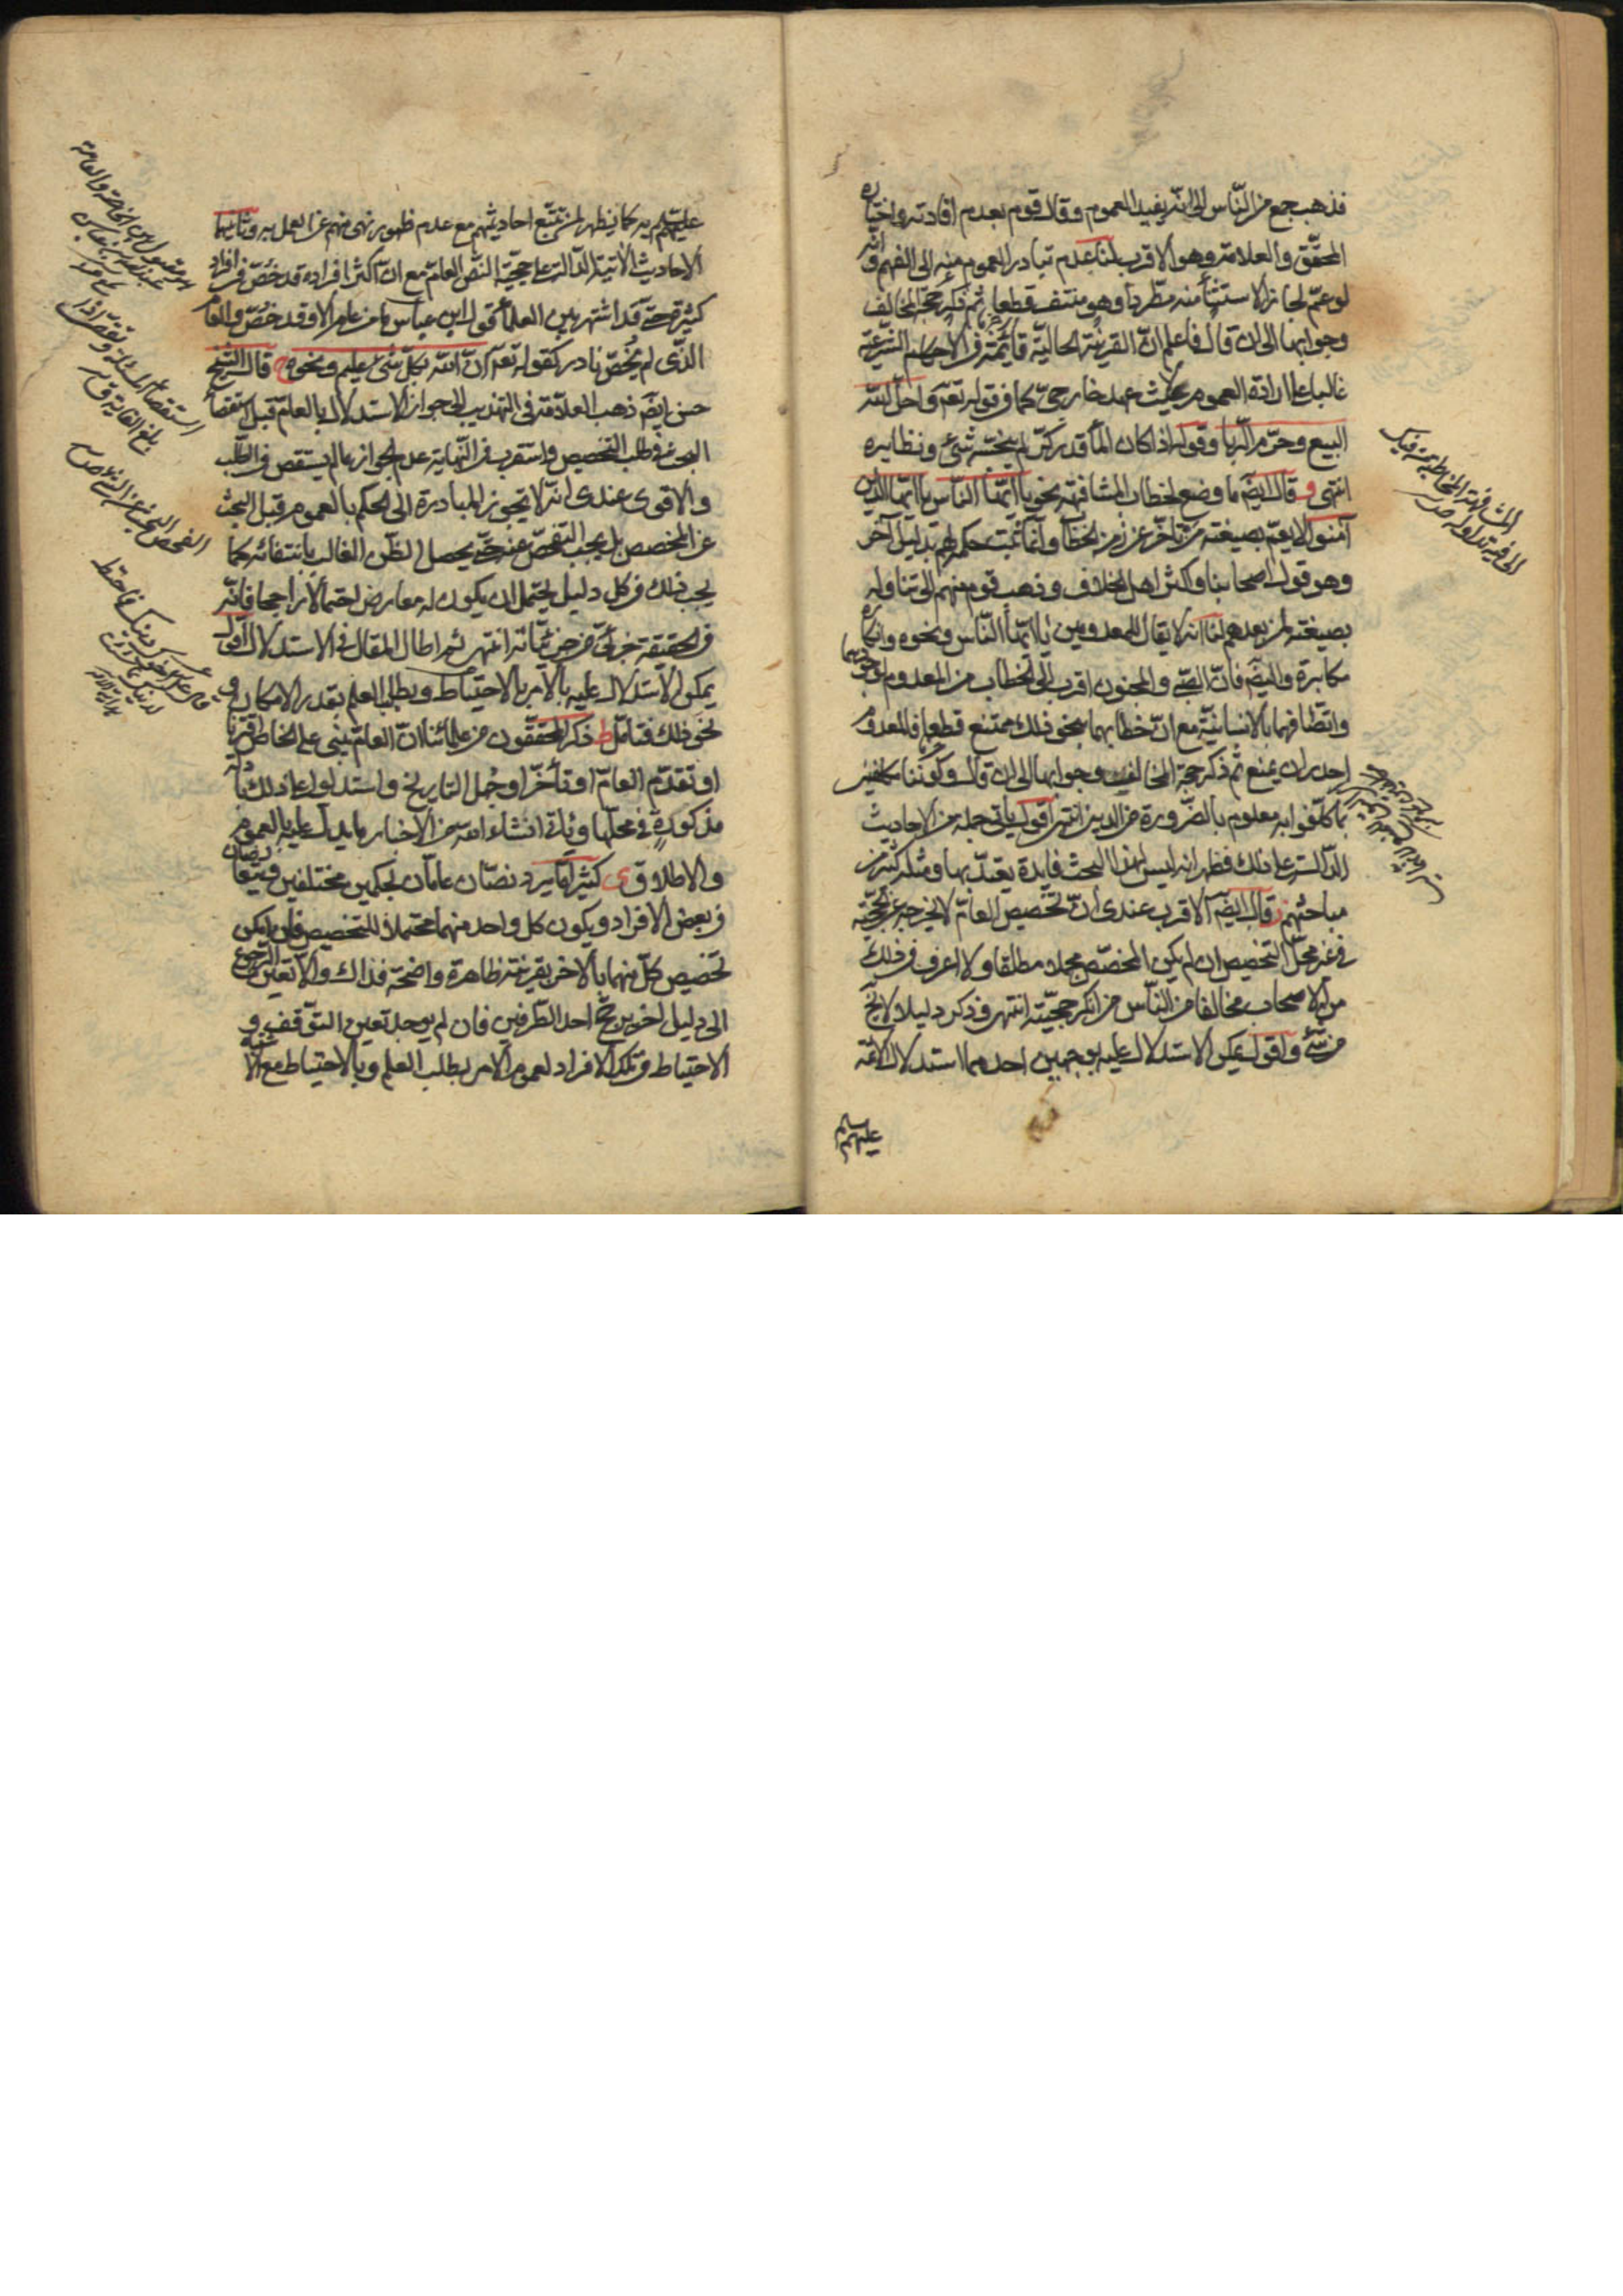 فذهب جمع من الناس الى انه يفيد العموم وقال قوم بعدم افادته واختاره
المحقق والعلامة وهو الاقرب لنا عدم تبادر العموم منه الى الفهم وانه
لو عم لجاز الاستثنآ منه مطردا وهو منتف قطعا ثم ذكر حجة المخالف
وجوابها الى ان قال فاعلم ان القرينة الحالية قائمة في الاحكام الشرعية
غالبا على ارادة العموم حيث لا عهد خارجي كما في قوله تعه واحل الله
البيع وحرم الربا وقوله اذا كان المآ قدر كر لم ينجسه شئ ونظايره
انتهى و قال ايضه ما وضع لخطاب المشافهة نحو يا ايها الناس يا ايها الذين
آمنوا لا يعم بصيغته من تأخر عن زمن الخطآ وانما يثبت حكمه لهم بدليل آخر
وهو قول اصحابنا واكثر اهل الخلاف وذهب قوم منهم الى تناوله
بصيغته لمن بعدهم لنا انه لا يقال للمعدومين يا ايها الناس ونحوه وانكاره
مكابرة وايضه فان الصبي والمجنون اقرب الى الخطاب من المعدوم لوجودهما
واتصافهما بالانسانية مع ان خطابهما بنحو ذلك ممتنع قطعا فالمعدوم
اجدر ان يمنع ثم ذكر حجة المخالف وجوابها الى ان قال وكوننا مكلفين
بما كلفوا به معلوم بالضرورة من الدين انتهى اقول ياتي جملة من الاحاديث
الدالة على ذلك فظهر انه ليس لهذا البحث فايدة يعتد بها ومثله كثير من
مباحثهم ز قال ايضه الاقرب عندى ان تخصيص العام لا يخرجه عن الحجية
في غير محل التخصيص ان لم يكن المخصص مجملا مطلقا ولا اعرف في ذلك
من الاصحاب مخالفا من الناس من انكر حجيته انتهى وذكر دليلا ولا يخ
من شئ واقول يمكن الاستدلال عليه بوجهين احدهما استدلال الائمة
عليهم السلم
عليهم السلم به كما يظهر لمن تتبع احاديثهم مع عدم ظهور نهى منهم عن العمل به وثانيهما
الاحاديث الآتية الدالة على حجية النص العام مع ان اكثر افراده قد خص في افراد
كثيرة حتى قد اشتهر بين العلمآ قول ابن عباس ما من عام الا وقد خص والعام
الذى لم يخص نادر كقوله تعه ان الله بكل شئ عليم ونحوه ح قال الشيخ
حسن ايضه ذهب العلامة في التهذيب الى جواز الاستدلال بالعام قبل استقصآ
البحث في طلب التخصيص واستقرب في النهاية عدم الجواز ما لم يستقص في الطلب
والاقوى عندى انه لا تجوز المبادرة الى الحكم بالعموم قبل البحث
عن المخصص بل يجب التفحص عنه حتى يحصل الظن الغالب بانتفائه كما
يجب ذلك في كل دليل يحتمل ان يكون له معارض احتمالا راجحا فانه
في الحقيقة جزئي من جزئياته انتهى ثم اطال المقال في الاستدلال اقول
يمكن الاستدلال عليه بالامر بالاحتياط وبطلب العلم بقدر الامكان و
نحو ذلك فتامل ط ذكر المحققون من علمائنا ان العام يبنى على الخاص اقترنا
او تقدم العام او تأخر او جهل التاريخ واستدلوا على ذلك بما
مذكورة في محلها وياتي انشاء الله من الاخبار ما يدل عليه بالعموم
والاطلاق ى كثيرا ما يرد نصان عامان بحكمين مختلفين فيتعارضان
في بعض الافراد ويكون كل واحد منهما محتملا للتخصيص فان امكن
تخصيص كل منهما بالآخر بقرينة ظاهرة واضحة فذاك والا تعين الرجوع
الى دليل اخر يرجح احد الطرفين فان لم يوجد تعين التوقف و
الاحتياط في تلك الافراد لعموم الامر بطلب العلم وبالاحتياط مع